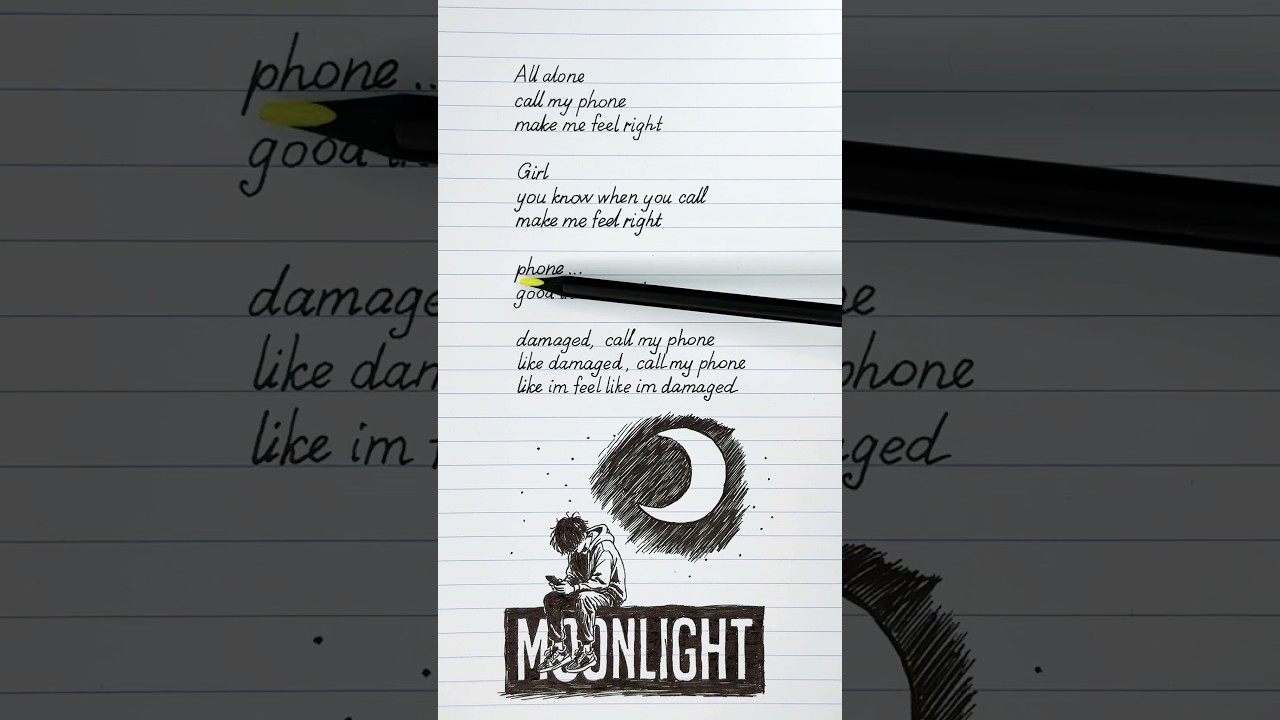 All alone
call my phone
make me feel right
Girl
you know when you call
make me feel right
phone...
good
damaged, call my phone
like damaged, call my phone
like im feel like im damaged
MOONLIGHT